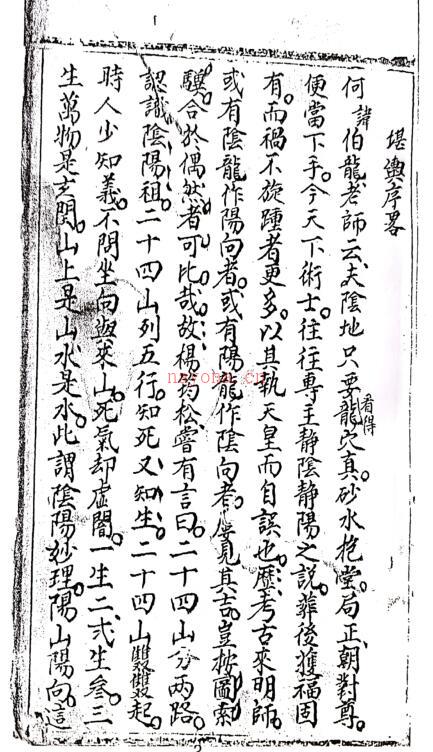 堪輿序畧
何諱伯龍老師云、夫陰地只要看得龍穴真。砂水抱堂局正、朝對尊。
便當下手。今天下術士。往往專主静陰静陽之說。葬後獲福固
有。而禍不旋踵者更多。以其執天皇而自誤也。歷考古來明師。
或有陰龍作陽向者。或有陽龍作陰向者。屡見其吉。豈按圖索
驥。合於偶然者可比哉。故楊筠松嘗有言曰。二十四山分兩路。
認識陰陽祖。二十四山列五行。知死又知生。二十四山雙雙起。
時人少知義。不問坐向與來山。死氣却虛閣。一生二、弍生叁。三
生萬物是玄関。山上是山水是水。此謂陰陽紗理。陽山陽向。這